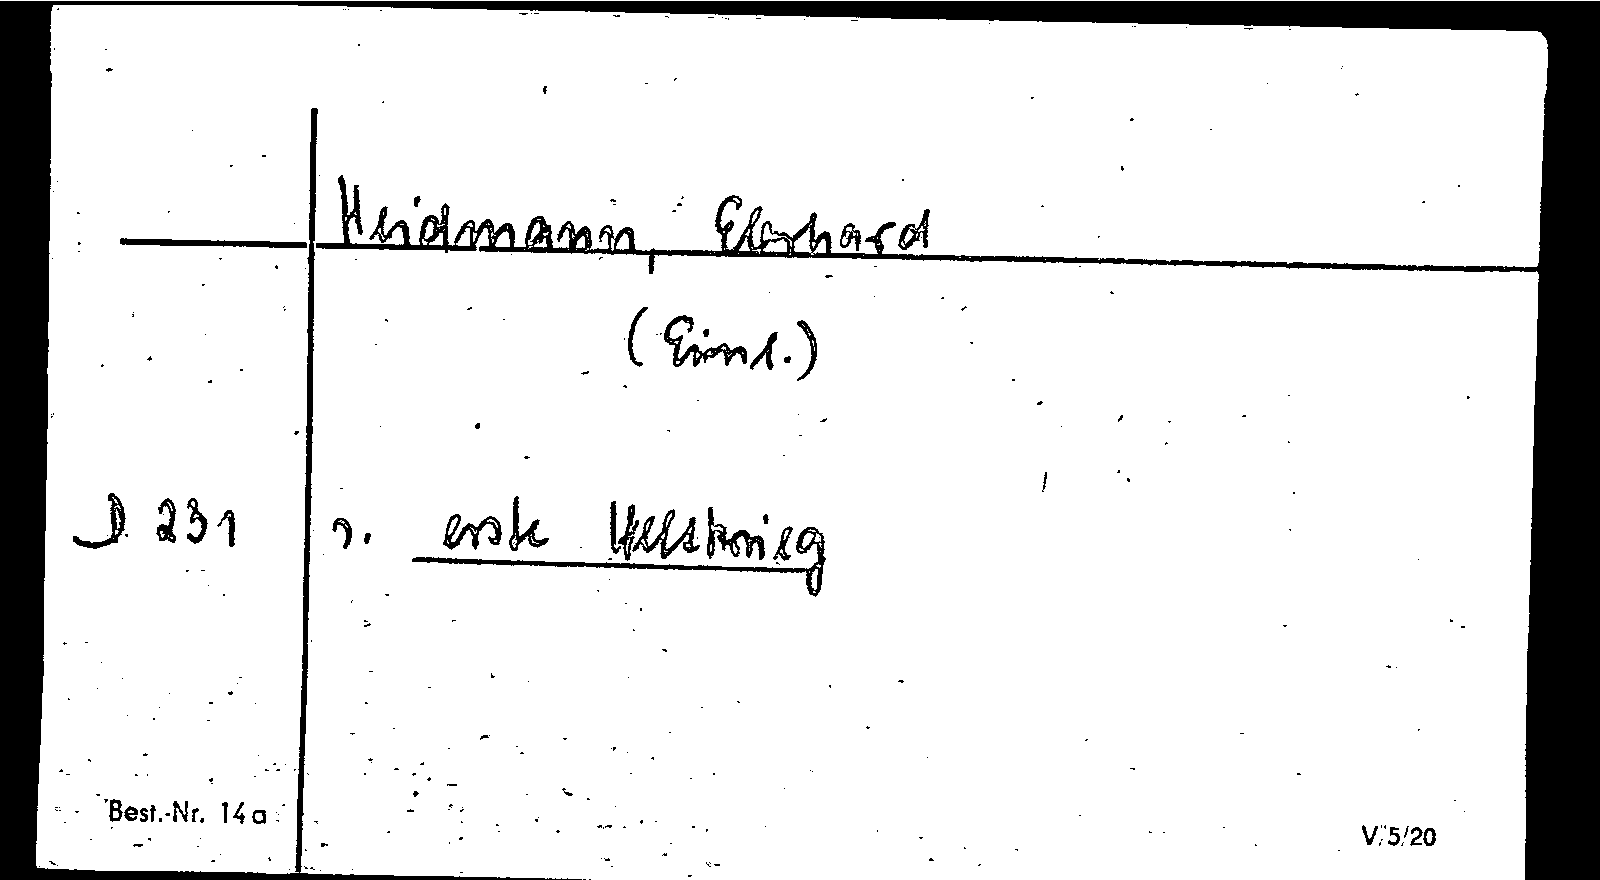 Heidmann, Eberhard
(Einl.)
D 231 s. erste Weltkrieg
Best.-Nr. 14a
V/5/20